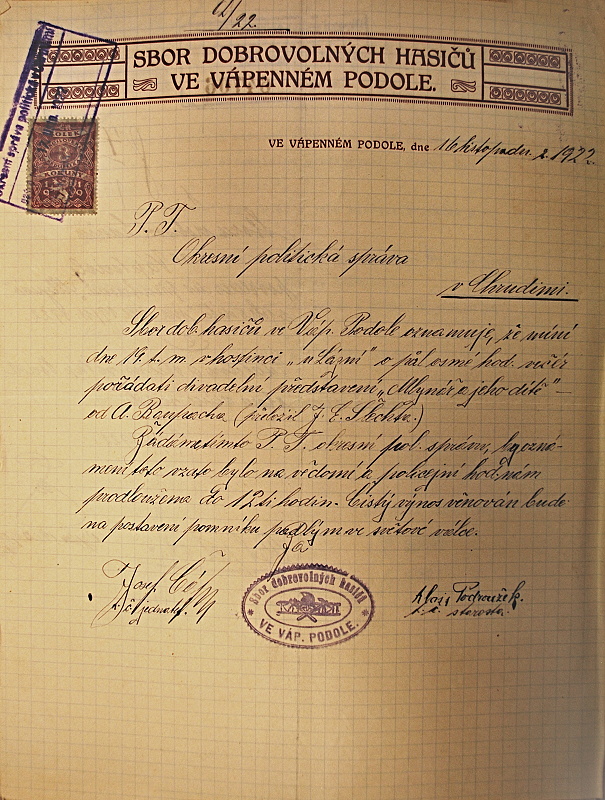 /22.
SBOR DOBROVOLNÝCH HASIČŮ
VE VÁPENNÉM PODOLE.
Okresní správa politická
VE VÁPENNÉM PODOLE, dne 16 listopadu r. 1922.
P. T.
Okresní politická správa
v Chrudimi.
Sbor dob. hasičů ve Váp. Podole oznamuje, že míní
dne 19. t. m. v hostinci „u Lázní" o půl osmé hod. večer
pořádati divadelní představení „Mlynář a jeho dítě" –
od A. Raupacha (přeložil J. E. Škchta.)
Žádáme tímto P. T. okresní pol. správu, by ozná-
mení toto vzato bylo na vědomí a policejní hod. nám
prodloužena do 12 ti hodin. Čistý výnos věnován bude
na postavení pomníku padlým ve světové válce.
Josef
t. č. jednatel
Sbor dobrovolných hasičů
VE VÁP. PODOLE.
Alois Podroužek.
t. č. starosta.